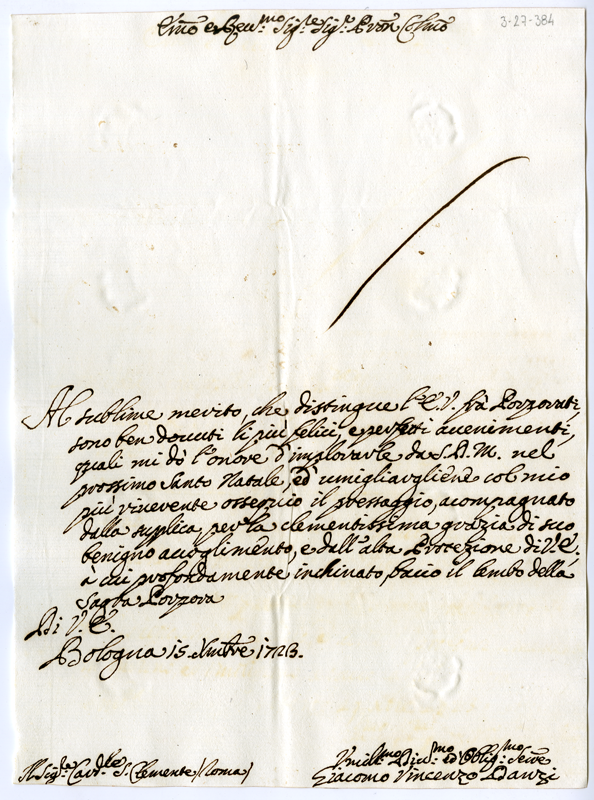 3-27-384
Emo e Reu.mo Sig.re Sig.re Pron Colmo
Al sublime merito, che distingue l'E.V. frà Porporati,
sono ben douuti li più felici, e perfetti auenimenti,
quali mi dò l'onore d'implorarle da S.D.M. nel
prossimo Santo Natale, ed' umigliargliene col mio
più riuerente ossequio il presaggio, acompagnato
dalla suplica, per la clementissima grazia di suo
benigno acoglimento, e dall'alta Protezione di V.E.
a cui profondamente inchinato, bacio il lembo della
Sagra Porpora
Di V.E.
Bologna 15 Xmbre 1723.
Umil.mo Diu.mo ed Oblig.mo Sere
Al Sig.re Card.le S. Clemente (Roma)
Giacomo Vincenzo Danzi